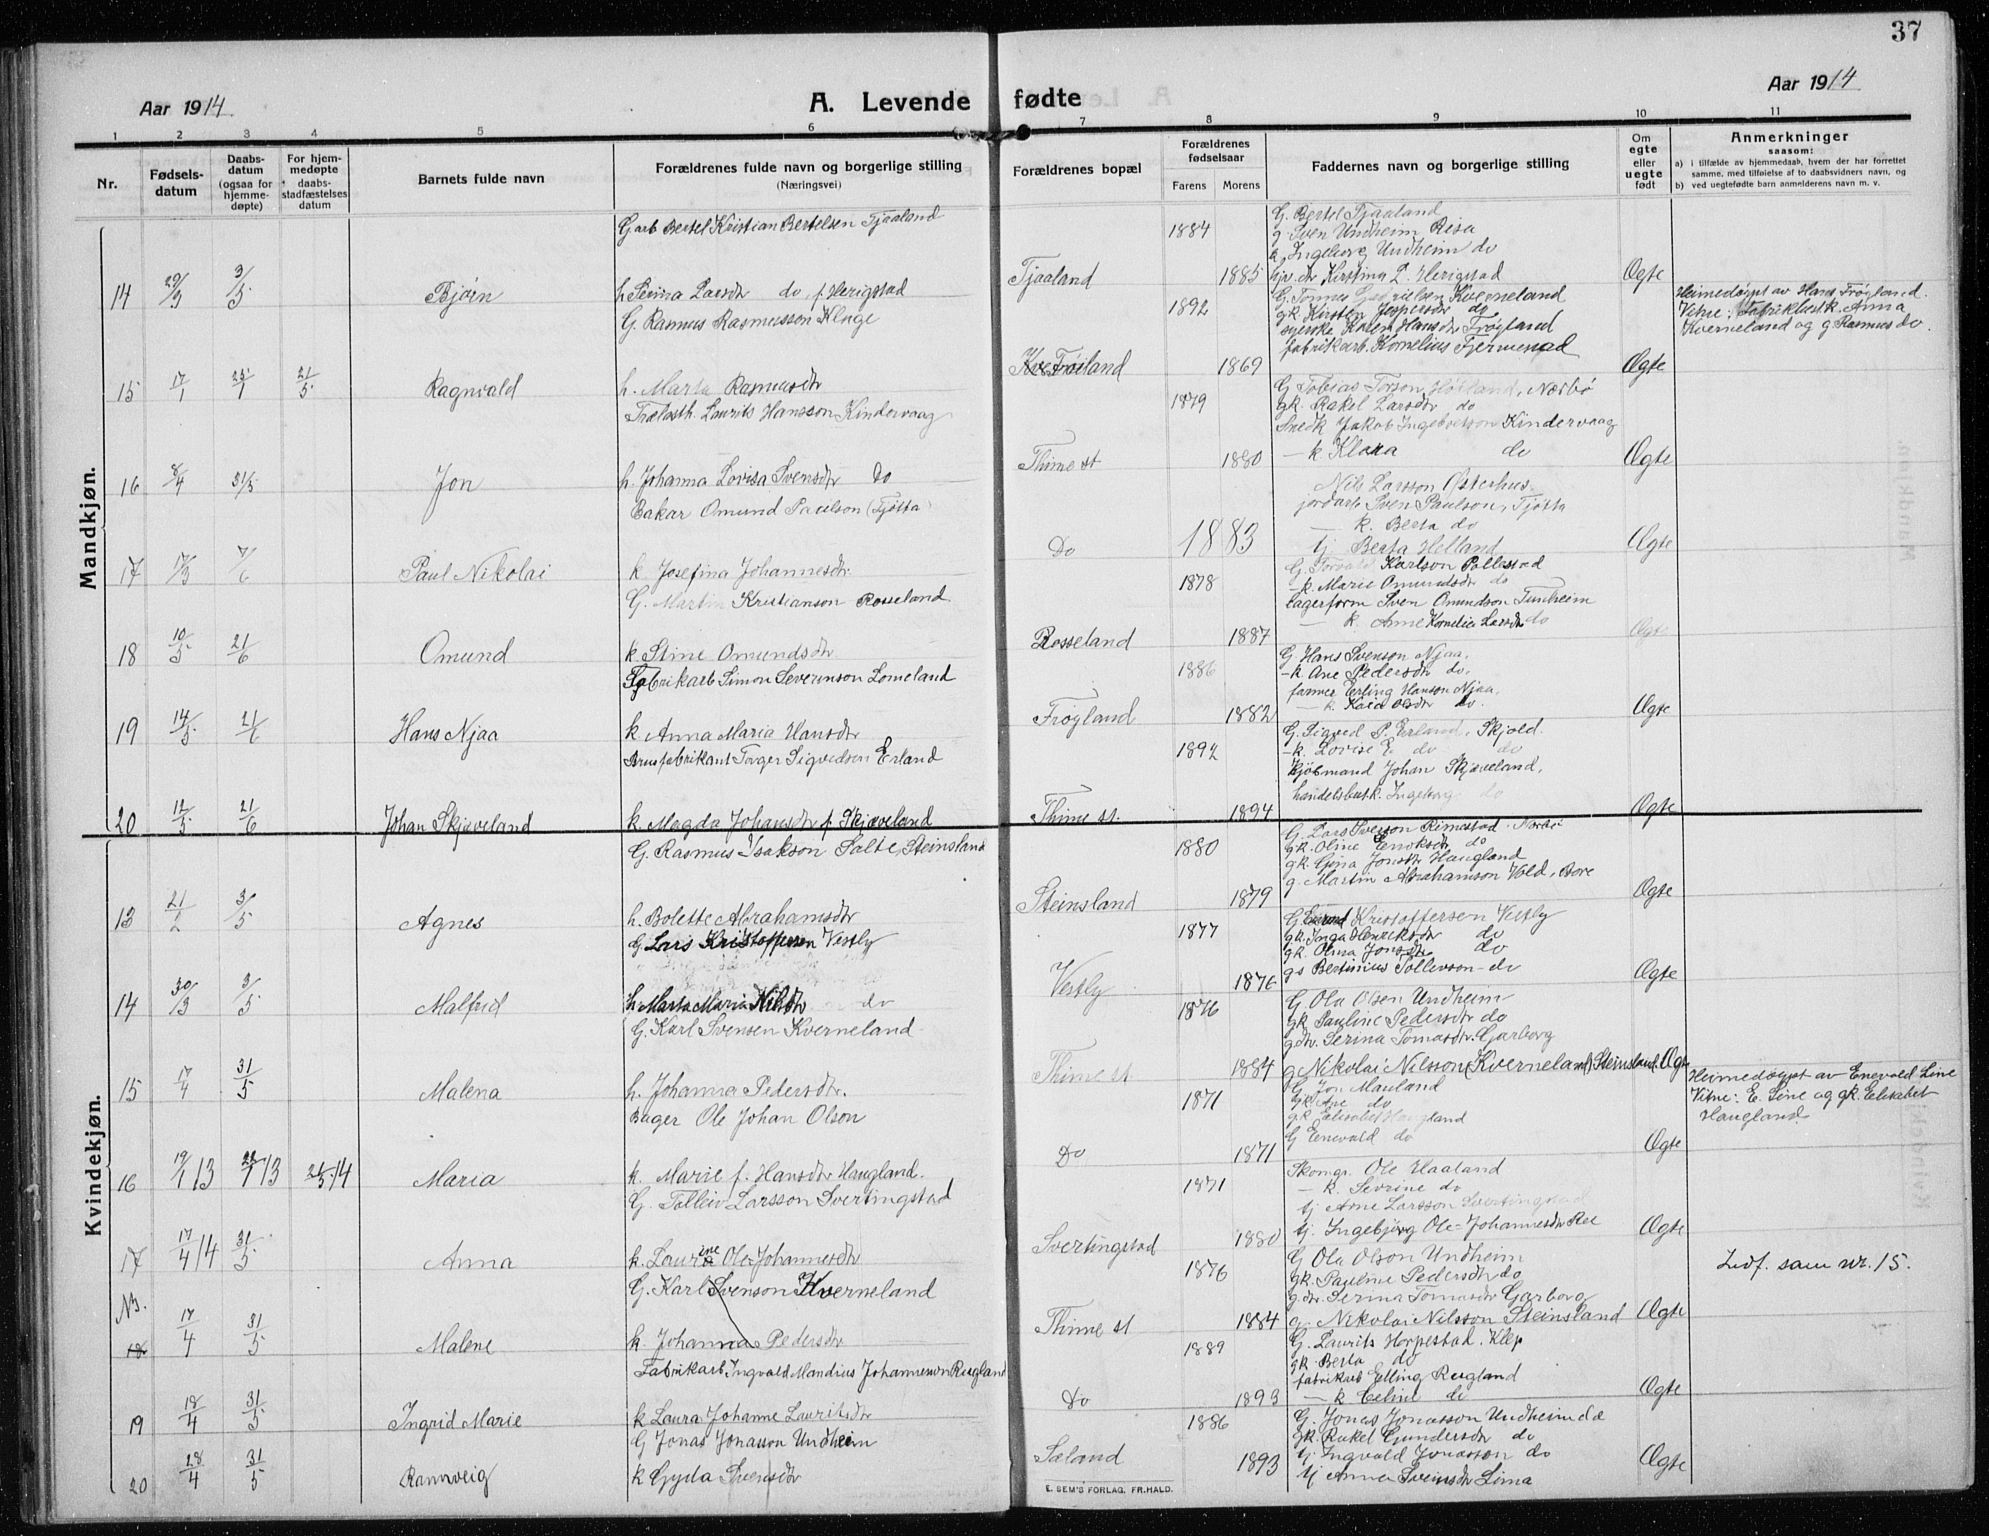 37
Aar 1914
A. Levende fødte
Aar 1914
1 2 3 4 5 6 7 8 9 10 11
Nr.
Fødsels-
datum
Daabs-
datum
(ogsaa for
hjemme-
døpte)
For hjem-
medøpte
daabs-
stadfæstelses
datum
Barnets fulde navn
Forældrenes fulde navn og borgerlige stilling
(Næringsvei)
Forældrenes bopæl
Forældrenes
fødselsaar
Farens Morens
Faddernes navn og borgerlige stilling
Om
egte
eller
uegte
født
Anmerkninger
saasom:
a) i tilfælde av hjemmedaab, hvem der har forrettet
samme, med tilføielse af to daabsvidners navn, og
b) ved uegtefødte barn anmelderens navn m. v.
Mandkjøn.
Garb Bertel Kristian Bertelsen Tjaaland
1884
G. Bertel Tjaaland
g Sven Undheim Risa
k. Ingeborg Undheim do
14 29/3 3/5 Bjørn
h. Serina Larsdtr do f. Herigstad
Tjaaland 1885
Kirstina L. Herigstad
Ægte
G. Rasmus Rasmusson Kluge
1892
gk. Kirsten Jespersdtr do
Karen Hansdtr Frøgland
fabrikarb. Kornelius Tjermestad
Heimedøypt av Hans Frøgland.
Vitne: Fabrikbest.k. Anna
Kverneland og g Rasmus do.
15 17/1 25/1 21/5 Ragnvald
h. Marta Rasmusdtr
Frøiland 1869
Ægte
Trælasth. Laurits Hansson Kindervaag
1879
G Tobias Torson Høiland, Nærbø
gk. Rakel Larsdtr do
Snedk Jakob Ingebretson Kindervaag
- k Klara do
16 8/4 31/5 Jon
h. Johanna Lovisa Svensdtr Do
Thime st 1880
Ægte
Bakar Omund Paulson (Tjøtta)
Nils Larsson Østerhus
jordarb Sven Paulson, Tjøtta
- k. Berta do
tj Berta Helland
17 17/3 7/6 Paul Nikolai
k Josefina Johannesdtr.
Do 1883
Ægte
G. Martin Kristianson Rosseland
1878
G. Torvald Karlson Pollestad
- k. Marie Omundsdtr do
Lagerform Sven Omundson Tunheim
- k. Anne Kornelia Larsdtr do
18 10/5 21/6 Omund
k Stine Omundsdtr
Rosseland 1887
Ægte
Fabrikarb Simon Severinson Lomeland
1886
G Hans Svenson Njaa.
- k. Ane Pedersdtr do.
farmer Erling Hanson Njaa.
- k. Kaia Olsdtr do.
19 14/5 21/6 Hans Njaa
k Anna Maria Hansdtr
Frøgland 1882
Ægte
Brusfabrikant Torger Sigvedsen Erland
1892
G. Sigved P. Erland, Skjold.
- k. Lovise E do do
Kjøbmand Johan Skjæveland,
handelsbest.k. Ingeborg do
20 12/5 21/6 Johan Skjæveland
k. Magda Johansdtr f. Skjæveland
Thime st. 1894
Ægte
Kvindekjøn.
G. Rasmus Isakson Salte, Steinsland
1880
G. Lars Sverson Rimestad. Nærbø
gk. Oline Eriksdtr do
gk. Gina Jonsdtr Haugland
g. Martin Abrahamson Vold, Bore
13 21/2 3/5 Agnes
h. Bolette Abrahamsdtr
Steinsland 1879
Ægte
G. Lars Kristoffersen Vestly
1877
G Kristoffersen Vestly
gk. Inga Henriksdtr do
gk. Olina Jonsdtr do
gs Bertinius Tollevson do
14 30/3 3/5 Malfrid
h Marta Maria Nilsdtr do
Vestly 1876
Ægte
G. Karl Svensen Kverneland
1876
G. Ola Olsen Undheim
gk Pauline Pedersdtr do
gdtr. Serina Tomasdtr. Garborg
g Nikolai Nilsson (Kverneland) Steinsland.
15 17/4 31/5 Malena
h. Johanna Pedersdtr.
Thime st 1884
Ægte
Bager Ole Johan Olson
1871
G Jon Mauland
gk Ane do
gk Elisabet Haugland
G Enevald do
Heimedøypt av Enevald Line
Vitne: E. Line og gk. Elisabet
Haugland.
16 19/1 13 26/1 13 24/5 14 Maria
k. Marie f. Hansdtr Haugland.
Do 1871
Ægte
G. Tolleiv Larsson Svertingstad
1871
Skomgr. Ole Haaland
- k. Sevrine do
tj Arne Larsson Svertingstad
tj. Ingebjørg Ole-Johannesdtr Ree
17 17/4 14 31/5 Anna
k. Laurine Ole-Johannesdtr
Svertingstad 1880
Ægte
G. Karl Svenson Kverneland
1876
G Ola Olson Undheim
gk. Pauline Pedersdtr do
gdtr. Serina Tomasdtr Garborg
g. Nikolai Nilsson Steinsland
Indf. sam nr. 15.
N3.
18 17/4 31/5 Malene
k. Johanna Pedersdtr
Thime st 1884
Ægte
Fabrikarb Ingvald Mandius Johannesson Rugland
1889
G. Laurits Horpestad. Klep
gk. Berta do
fabrikarb Elling Rugland
- k Celine do
19 18/4 31/5 Ingrid Marie
k Laura Johanne Lauritsdtr
Do 1893
Ægte
G Jonas Jonasson Undheim
1886
G. Jonas Jonasson Undheim d.e
gk. Rakel Gundersdtr do
tj Ingvald Jonasson do
tj Anna Sveinsdtr Lima
20 28/4 31/5 Rannveig
k Gyda Svensdtr
Saland 1893
Ægte
E. SEM'S FORLAG, FR.HALD.